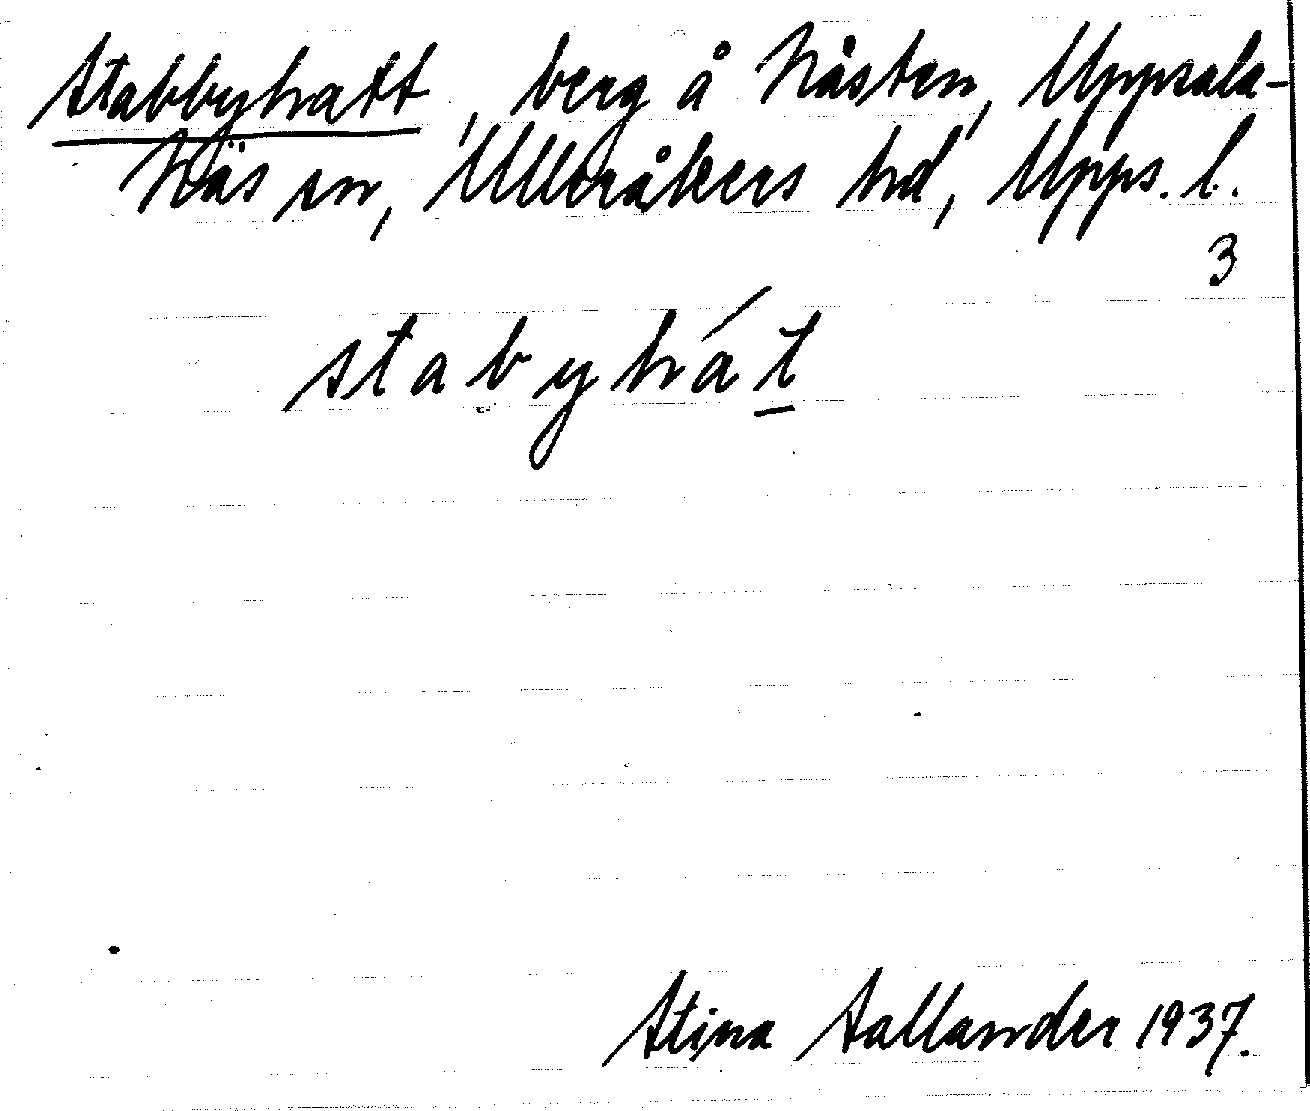 Stabbyhatt, berg å Nåsten, Uppsala-
Näs sn, Ulleråkers hd, Upps. l.
3
stabyhát
Stina Sallander 1937.